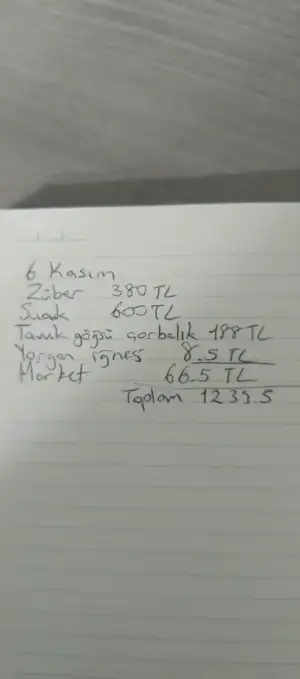 6 Kasım
Züber 380 TL
600 TL
Tavuk göğsü çorbalık 188 TL
Yorgan iğnesi 8.5 TL
Market 66.5 TL
Toplam 1239.5